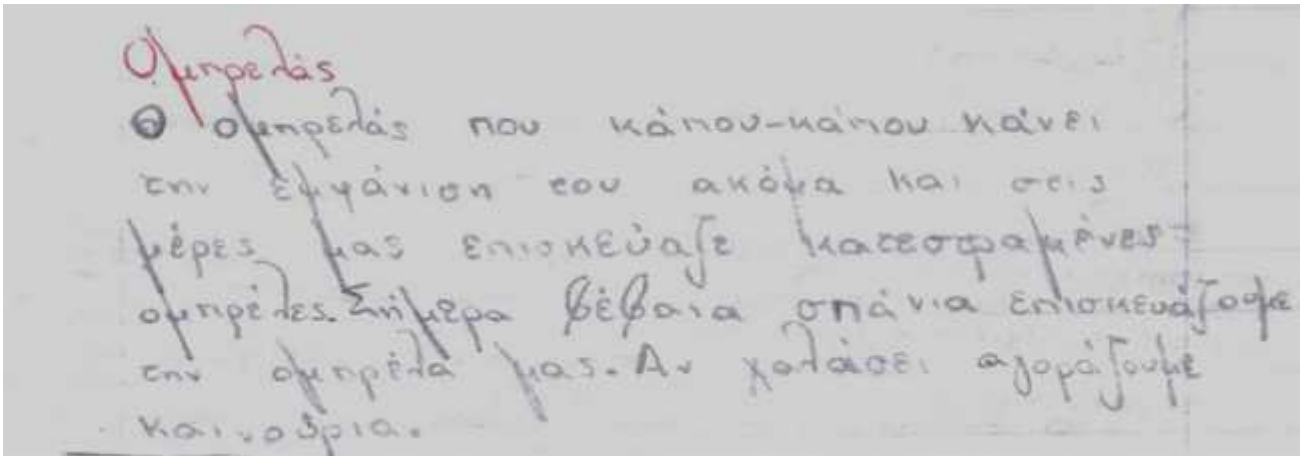 Ομπρελάς
Ο ομπρελάς που κάπου-κάπου κάνει
την εμφάνιση του ακόμα και στις
μέρες μας επισκεύαζε κατεστραμένες
ομπρέλες. Σήμερα βέβαια σπάνια επισκευάζουμε
την ομπρέλα μας. Αν χαλάσει αγοράζουμε
καινούρια.